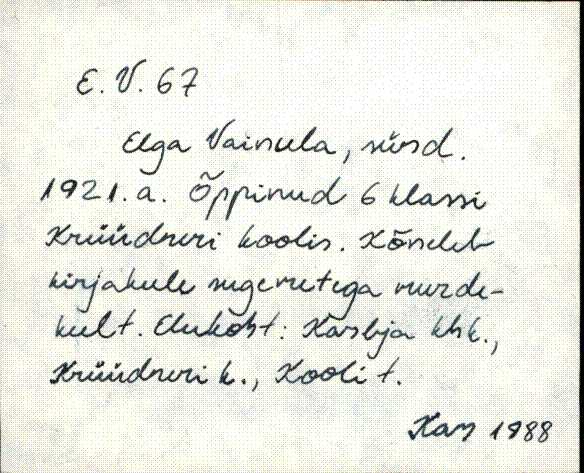 E. V. 67
Elga Vainula, sünd.
1921. a. Õppinud 6 klassi
Krüüdneri koolis. Kõneleb
kirjakeele sugemetega murde-
keelt. Elukoht: Karilatsi khk.,
Krüüdneri k., Kooli t.
Kan 1988